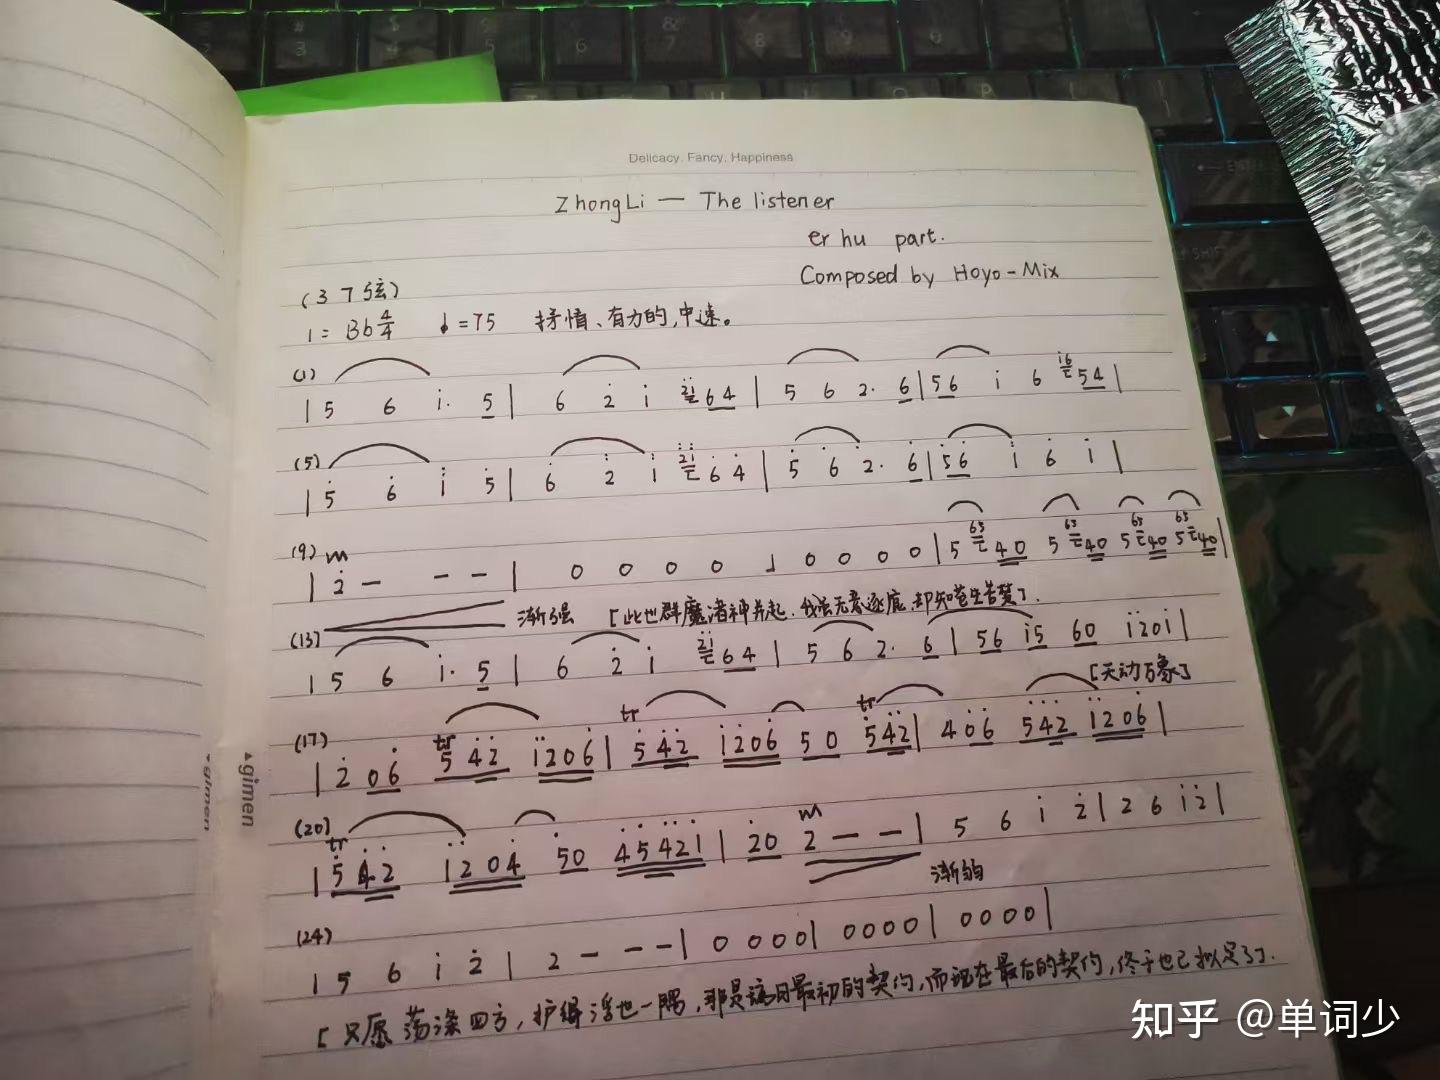 Delicacy. Fancy. Happiness
ZhongLi — The listener
er hu part.
Composed by Hoyo-Mix
(3 7 弦)
1 = Bb 4/4 ♩=75 抒情、有力的,中速。
(1)
| 5 6 i. 5 | 6 2 i 2i 6 4 | 5 6 2. 6 | 5 6 i 6 i6 5 4 |
(5)
| 5 6 i 5 | 6 2 i 2i 6 4 | 5 6 2. 6 | 5 6 i 6 i |
(9)
| 2 — — — | 0 0 0 0 | 0 0 0 0 | 5 65 4 0 5 65 4 0 5 65 4 0 5 65 4 0 |
渐强 [此世群魔诸神并起,我虽无意逐鹿,却知苍生苦楚]
(13)
| 5 6 i. 5 | 6 2 i 2i 6 4 | 5 6 2. 6 | 5 6 i 5 6 0 i 2 0 i |
[天动万象]
(17)
| 2 0 6 tr 5 4 2 i 2 0 6 | tr 5 4 2 i 2 0 6 5 0 tr 5 4 2 | 4 0 6 5 4 2 i 2 0 6 |
(20)
| tr 5 4 2 i 2 0 4 5 0 4 5 4 2 i | 2 0 2 — — | 5 6 i 2 | 2 6 i 2 |
渐弱
(24)
| 5 6 i 2 | 2 — — — | 0 0 0 0 | 0 0 0 0 | 0 0 0 0 |
[只愿荡涤四方,护得浮世一隅,那是諸日最初的契约,而现在最后的契约,终于也已拟定了].
gimen
gimen
知乎 @单词少